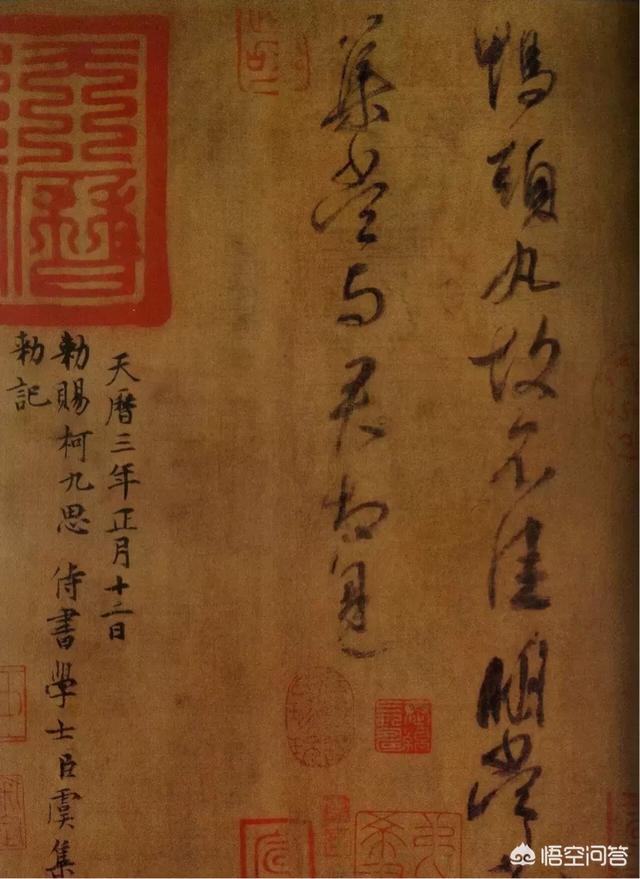 鴨頭丸故不佳明當
集當与君相見
天曆
天曆三年正月十二日
勑賜柯九思 侍書學士臣虞集
勑記
悟空问答